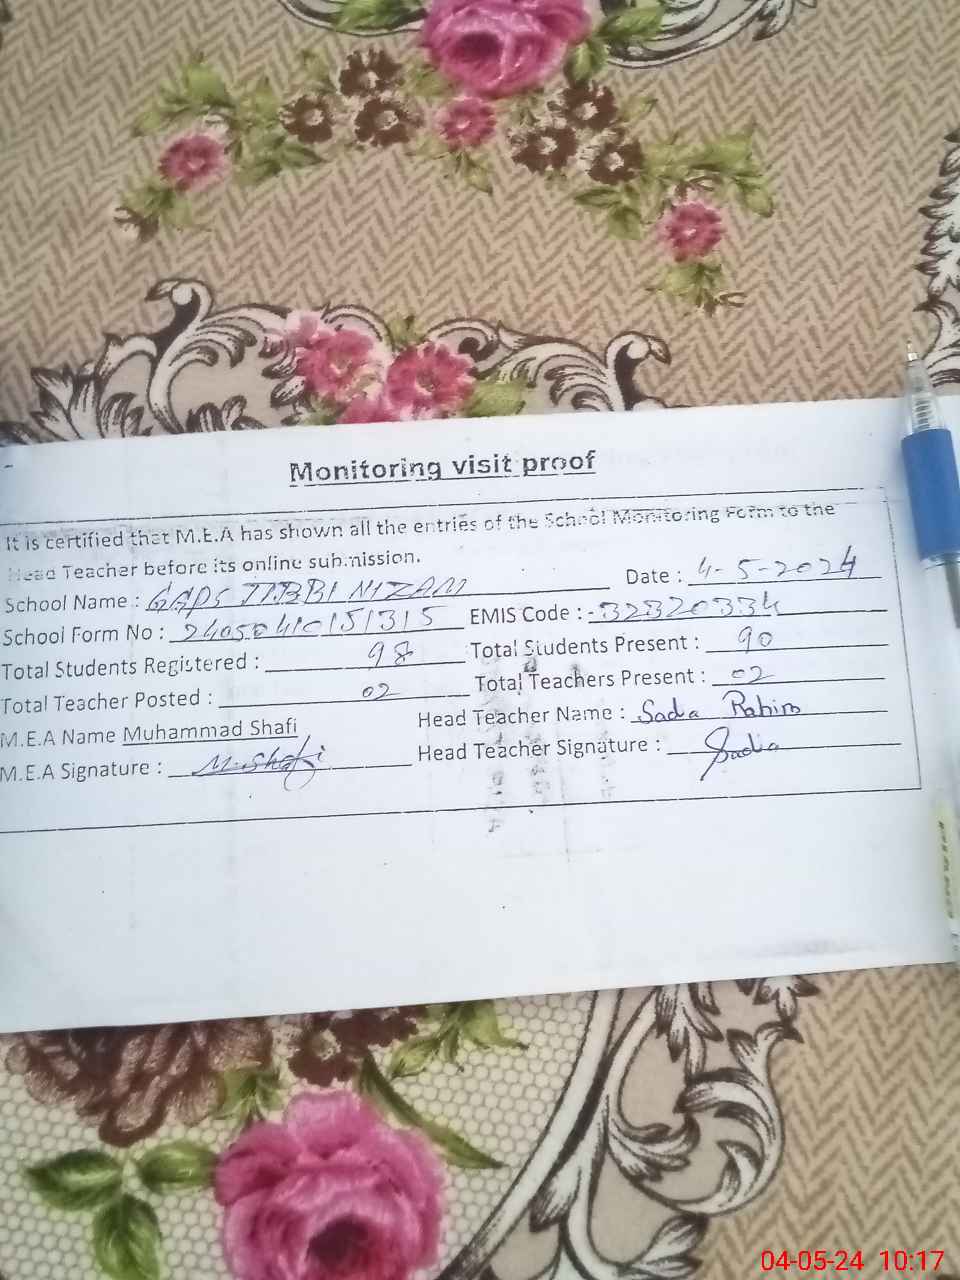 Monitoring visit proof
It is certified that M.E.A has shown all the entries of the School Monitoring Form to the
Head Teacher before its online submission.
School Name : GGPS TIBBI NIZAM Date : 4-5-2024
School Form No : 24050410151315 EMIS Code : 32320334
Total Students Registered : 98 Total Students Present : 90
Total Teacher Posted : 02 Total Teachers Present : 02
M.E.A Name Muhammad Shafi Head Teacher Name : Sadia Rahim
M.E.A Signature : M.Shafi Head Teacher Signature : Sadia
04-05-24 10:17